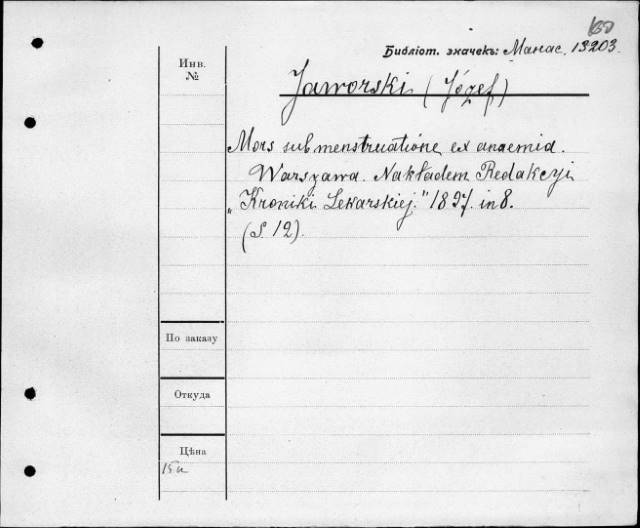 Библіот. значекъ: Манас. 13203.
Инв.
№
Jaworski (Józef)
Mors sub menstruatione ex anaemia.
Warszawa. Nakładem Redakcyi
„Kroniki Lekarskiej." 1897. in 8.
(S. 12).
По заказу
Откуда
Цѣна